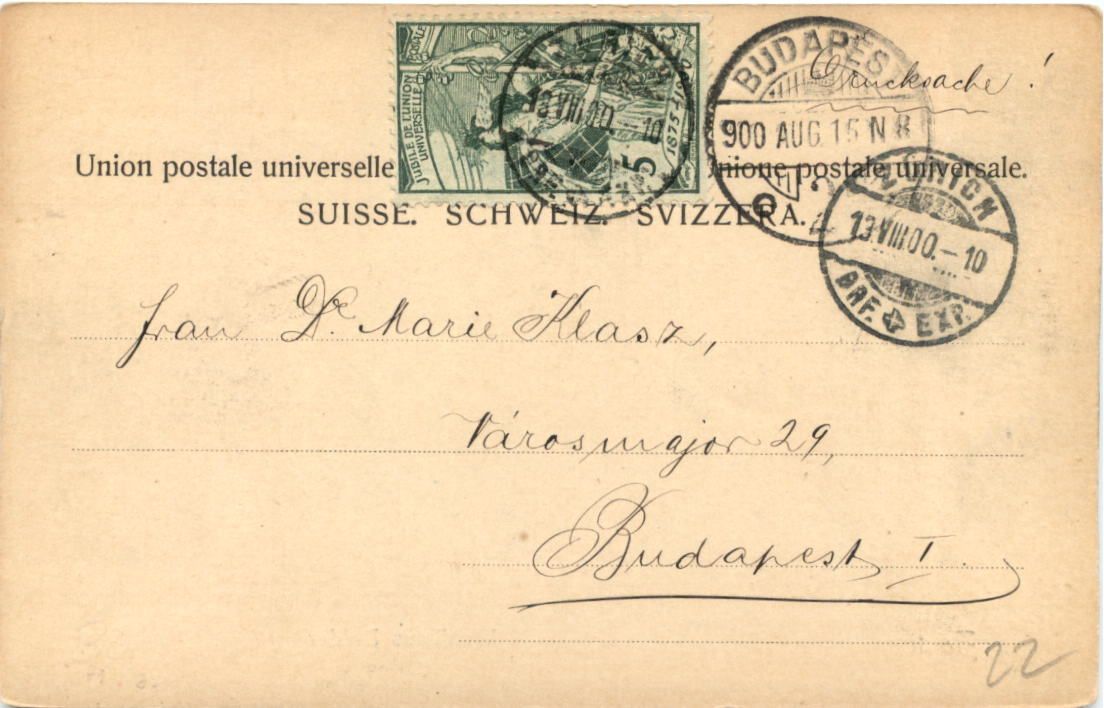 JUBILÉ DE L'UNION POSTALE
UNIVERSELLE
1875
5
BUDAPES
900 AUG 15 N 8
Drucksache!
Union postale universelle nione postale universale.
SUISSE. SCHWEIZ. SVIZZERA.
13.VIII.00.–10
BRF. EXP.
13.VIII.00.–10
BRF. EXP.
Frau Dr. Marie Klasz,
Városmajor 29,
Budapest I.
22